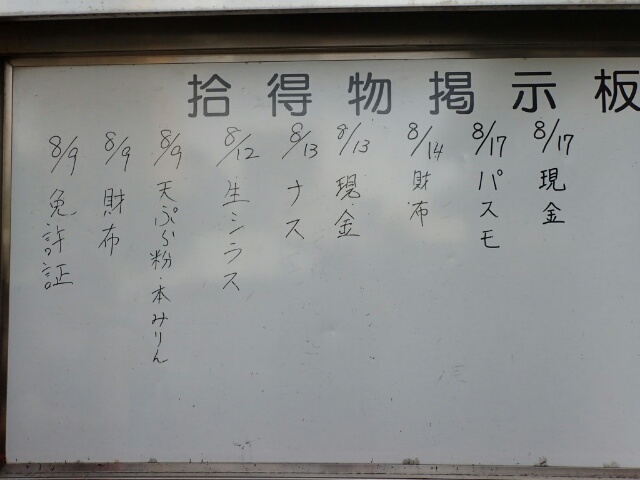 拾得物掲示板
8/17 現金
8/17 パスモ
8/14 財布
8/13 現金
8/13 ナス
8/12 生シラス
8/9 天ぷら粉・本みりん
8/9 財布
8/9 免許証